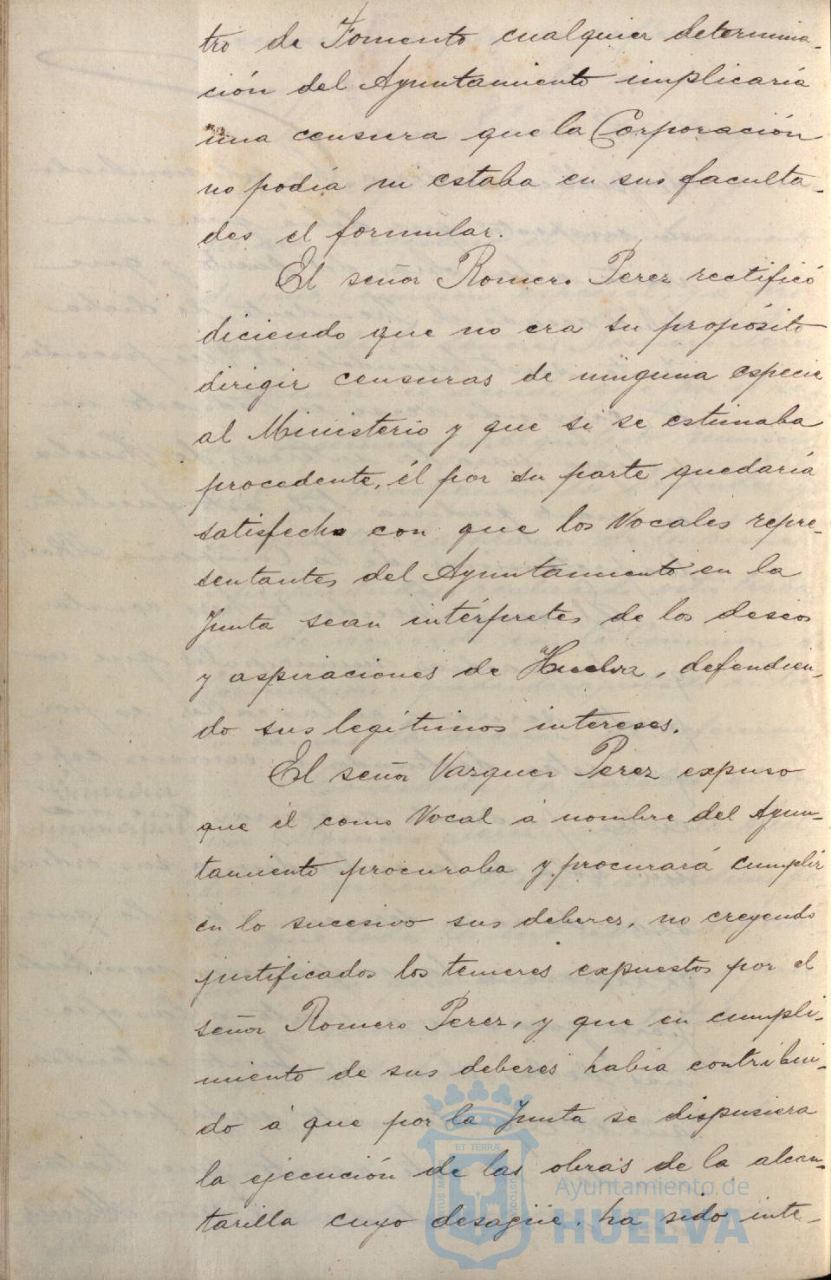 tro de Fomento cualquier determina-
ción del Ayuntamiento implicaría
una censura que la Corporación
no podía ni estaba en sus faculta-
des el formular.
El señor Romero Perez rectificó
diciendo que no era su propósito
dirigir censuras de ninguna especie
al Ministerio y que si se estimaba
procedente, él por su parte quedaría
satisfecho con que los Vocales repre-
sentantes del Ayuntamiento en la
Junta sean intérpretes de los deseos
y aspiraciones de Huelva, defendien-
do sus legítimos intereses.
El señor Vazquez Perez expuso
que él como Vocal á nombre del Ayun-
tamiento procuraba y procurará cumplir
en lo sucesivo sus deberes, no creyendo
justificados los temores expuestos por el
señor Romero Perez, y que en cumpli-
miento de sus deberes habia contribui-
do á que por la Junta se dispusiera
la ejecución de las obras de la alcan-
tarilla cuyo desagüe ha sido inte-
ET TERRA
Ayuntamiento de
HUELVA